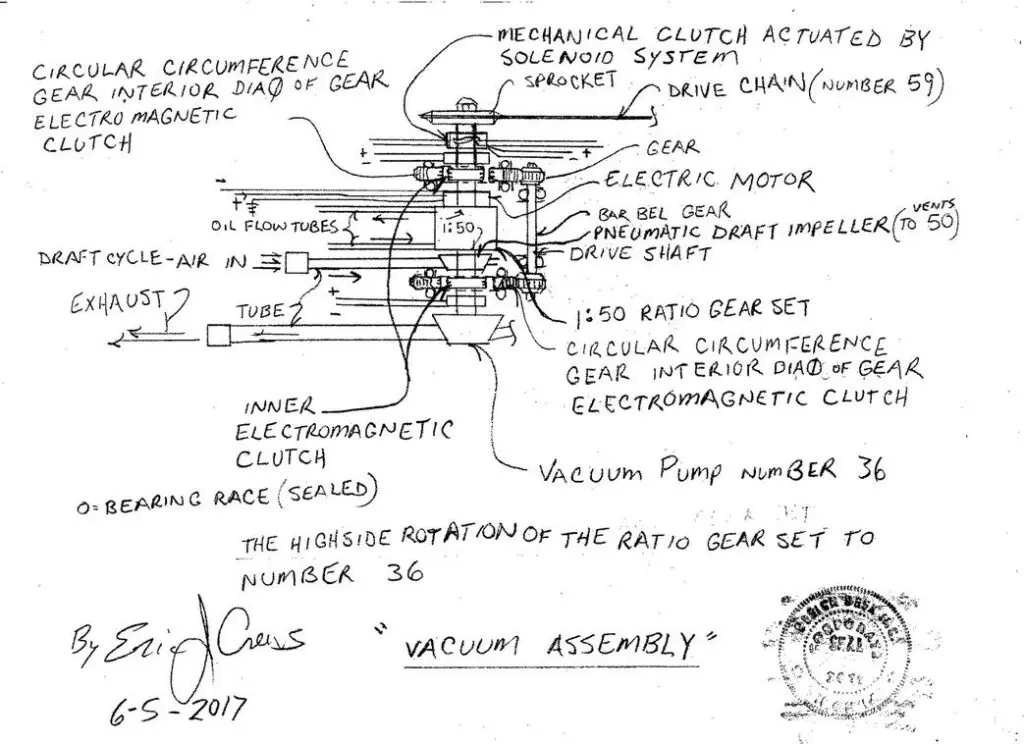 MECHANICAL CLUTCH ACTUATED BY
SOLENOID SYSTEM
CIRCULAR CIRCUMFERENCE
GEAR INTERIOR DIAØ OF GEAR
ELECTRO MAGNETIC
CLUTCH
SPROCKET
DRIVE CHAIN (NUMBER 59)
+
-
- +
GEAR
ELECTRIC MOTOR
-
+
OIL FLOW TUBES
1:50
BAR BEL GEAR
PNEUMATIC DRAFT IMPELLER (TO 50) VENTS
DRIVE SHAFT
DRAFT CYCLE-AIR IN
EXHAUST
TUBE
+
-
1:50 RATIO GEAR SET
CIRCULAR CIRCUMFERENCE
GEAR INTERIOR DIAØ OF GEAR
ELECTROMAGNETIC CLUTCH
INNER
ELECTROMAGNETIC
CLUTCH
VACUUM PUMP NUMBER 36
O=BEARING RACE (SEALED)
THE HIGHSIDE ROTATION OF THE RATIO GEAR SET TO
NUMBER 36
By Eric J Crews
6-5-2017
"VACUUM ASSEMBLY"